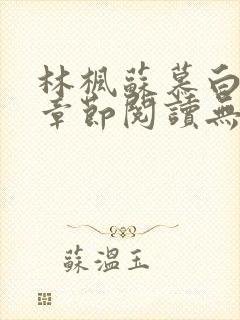 林楓蘇慕白
章節閱讀無
蘇溫玉